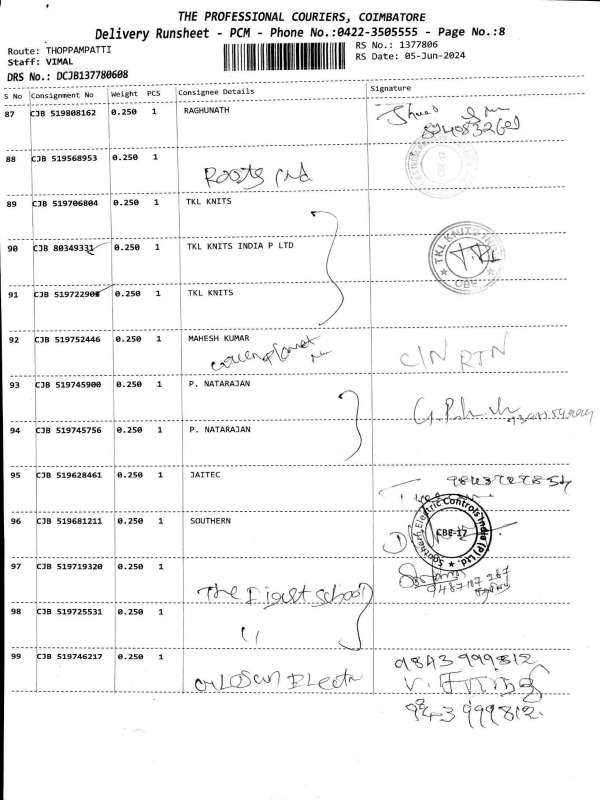 THE PROFESSIONAL COURIERS, COIMBATORE
Delivery Runsheet - PCM - Phone No.:0422-3505555 - Page No.:8
Route: THOPPAMPATTI
RS No.: 1377806
Staff: VIMAL
RS Date: 05-Jun-2024
DRS No.: DCJB137780608
S No Consignment No Weight PCS Consignee Details Signature
87 CJB 519808162 0.250 1 RAGHUNATH
88 CJB 519568953 0.250 1
Roots ind
89 CJB 519706804 0.250 1 TKL KNITS
90 CJB 80349331 0.250 1 TKL KNITS INDIA P LTD
TKL KNITS
CBE
91 CJB 519722908 0.250 1 TKL KNITS
92 CJB 519752446 0.250 1 MAHESH KUMAR
C/N RTN
93 CJB 519745900 0.250 1 P. NATARAJAN
94 CJB 519745756 0.250 1 P. NATARAJAN
95 CJB 519628461 0.250 1 JAITEC
96 CJB 519681211 0.250 1 SOUTHERN
Southern Electric Controls India (P) Ltd.
CBE-17
97 CJB 519719320 0.250 1
The First school
9487187267
98 CJB 519725531 0.250 1
11
99 CJB 519746217 0.250 1
9843999812
9843999812